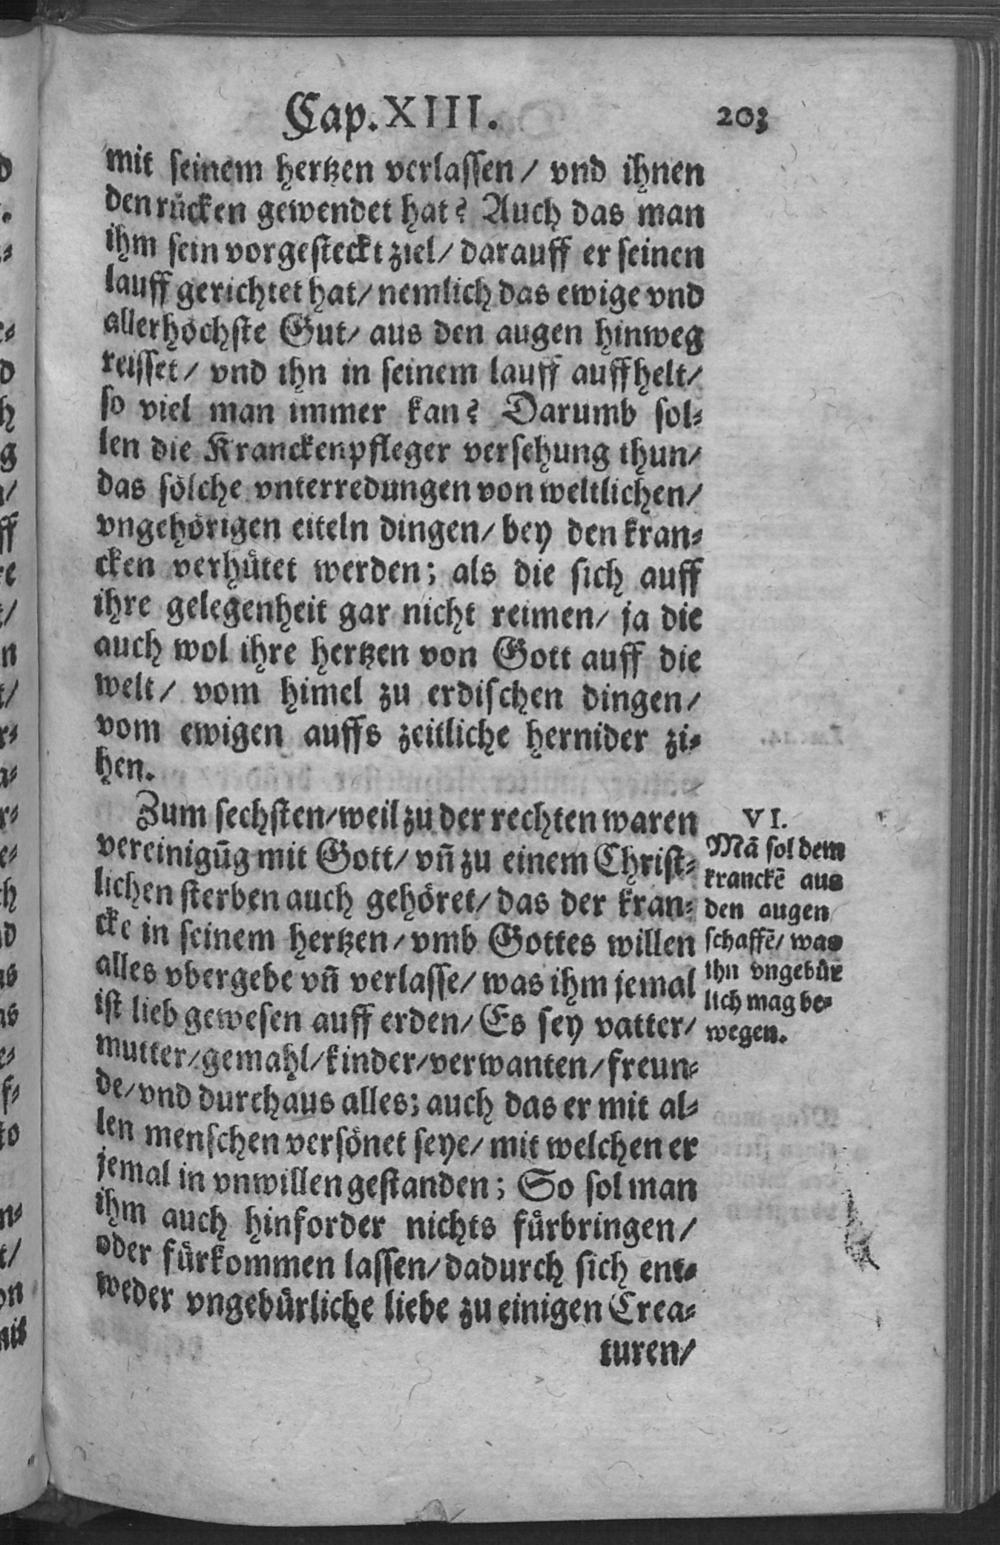 Cap. XIII. 203
mit seinem hertzen verlassen / vnd ihnen
den rücken gewendet hat? Auch das man
ihm sein vorgesteckt ziel / darauff er seinen
lauff gerichtet hat / nemlich das ewige vnd
allerhöchste Gut / aus den augen hinweg
reisset / vnd ihn in seinem lauff auffhelt /
so viel man immer kan? Darumb sol⸗
len die Kranckenpfleger versehung thun /
das sölche vnterredungen von weltlichen /
vngehörigen eiteln dingen / bey den kran⸗
cken verhütet werden; als die sich auff
ihre gelegenheit gar nicht reimen / ja die
auch wol ihre hertzen von Gott auff die
welt / vom himel zu erdischen dingen /
vom ewigen auffs zeitliche hernider zi⸗
hen.
Zum sechsten / weil zu der rechten waren
vereinigūg mit Gott / vñ zu einem Christ⸗
lichen sterben auch gehöret / das der kran⸗
cke in seinem hertzen / vmb Gottes willen
alles vbergebe vñ verlasse / was ihm jemal
ist lieb gewesen auff erden / Es sey vatter /
mutter / gemahl / kinder / verwanten / freun⸗
de / vnd durchaus alles; auch das er mit al⸗
len menschen versönet seye / mit welchen er
jemal in vnwillen gestanden; So sol man
ihm auch hinforder nichts fürbringen /
oder fürkommen lassen / dadurch sich ent⸗
weder vngebürliche liebe zu einigen Crea⸗
turen /
VI.
Mā sol dem
kranckē aus
den augen
schaffē / was
ihn vngebür
lich mag be⸗
wegen.